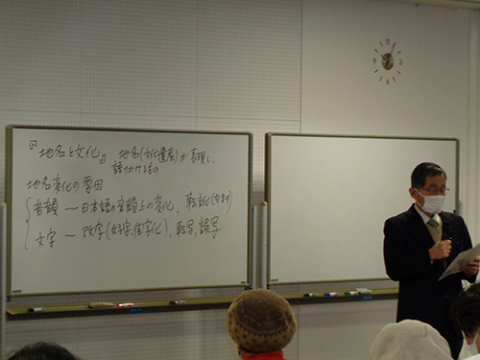 『地名と文化』 地名(文化遺産)が表現し、
語りかけるもの
地名変化の要因
音韻 ― 日本語の音韻上の変化、転訛(なまり)
文字 ～ 改字(好字、佳字化)、転写、誤写